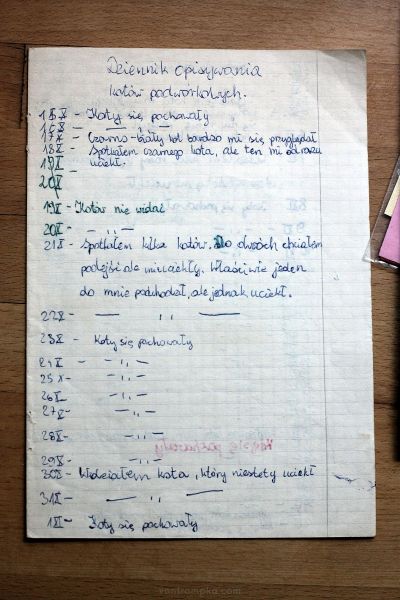 Dziennik opisywania
kotów podwórkowych.
15X - Koty się pochowały
16X - — ,, —
17X - Czarno-biały kot bardzo mi się przyglądał
18X - Spotkałem czarnego kota, ale ten mi odrazu
uciekł.
19X
20X
19X - Kotów nie widać
20X - — ,, —
21X - Spotkałem kilka kotów. Do dwóch chciałem
podejść ale mi uciekły. Właściwie jeden
do mnie podchodził, ale jednak uciekł.
22X - — ,, —
23X - Koty się pochowały
24X - - ,, -
25X - - ,, -
26X - - ,, -
27X - - ,, -
28X - - ,, -
Koty się pochowały
29X - - ,, -
30X - Widziałem kota, który niestety uciekł
31X - — ,, —
1XI - Koty się pochowały
vontrompka.com